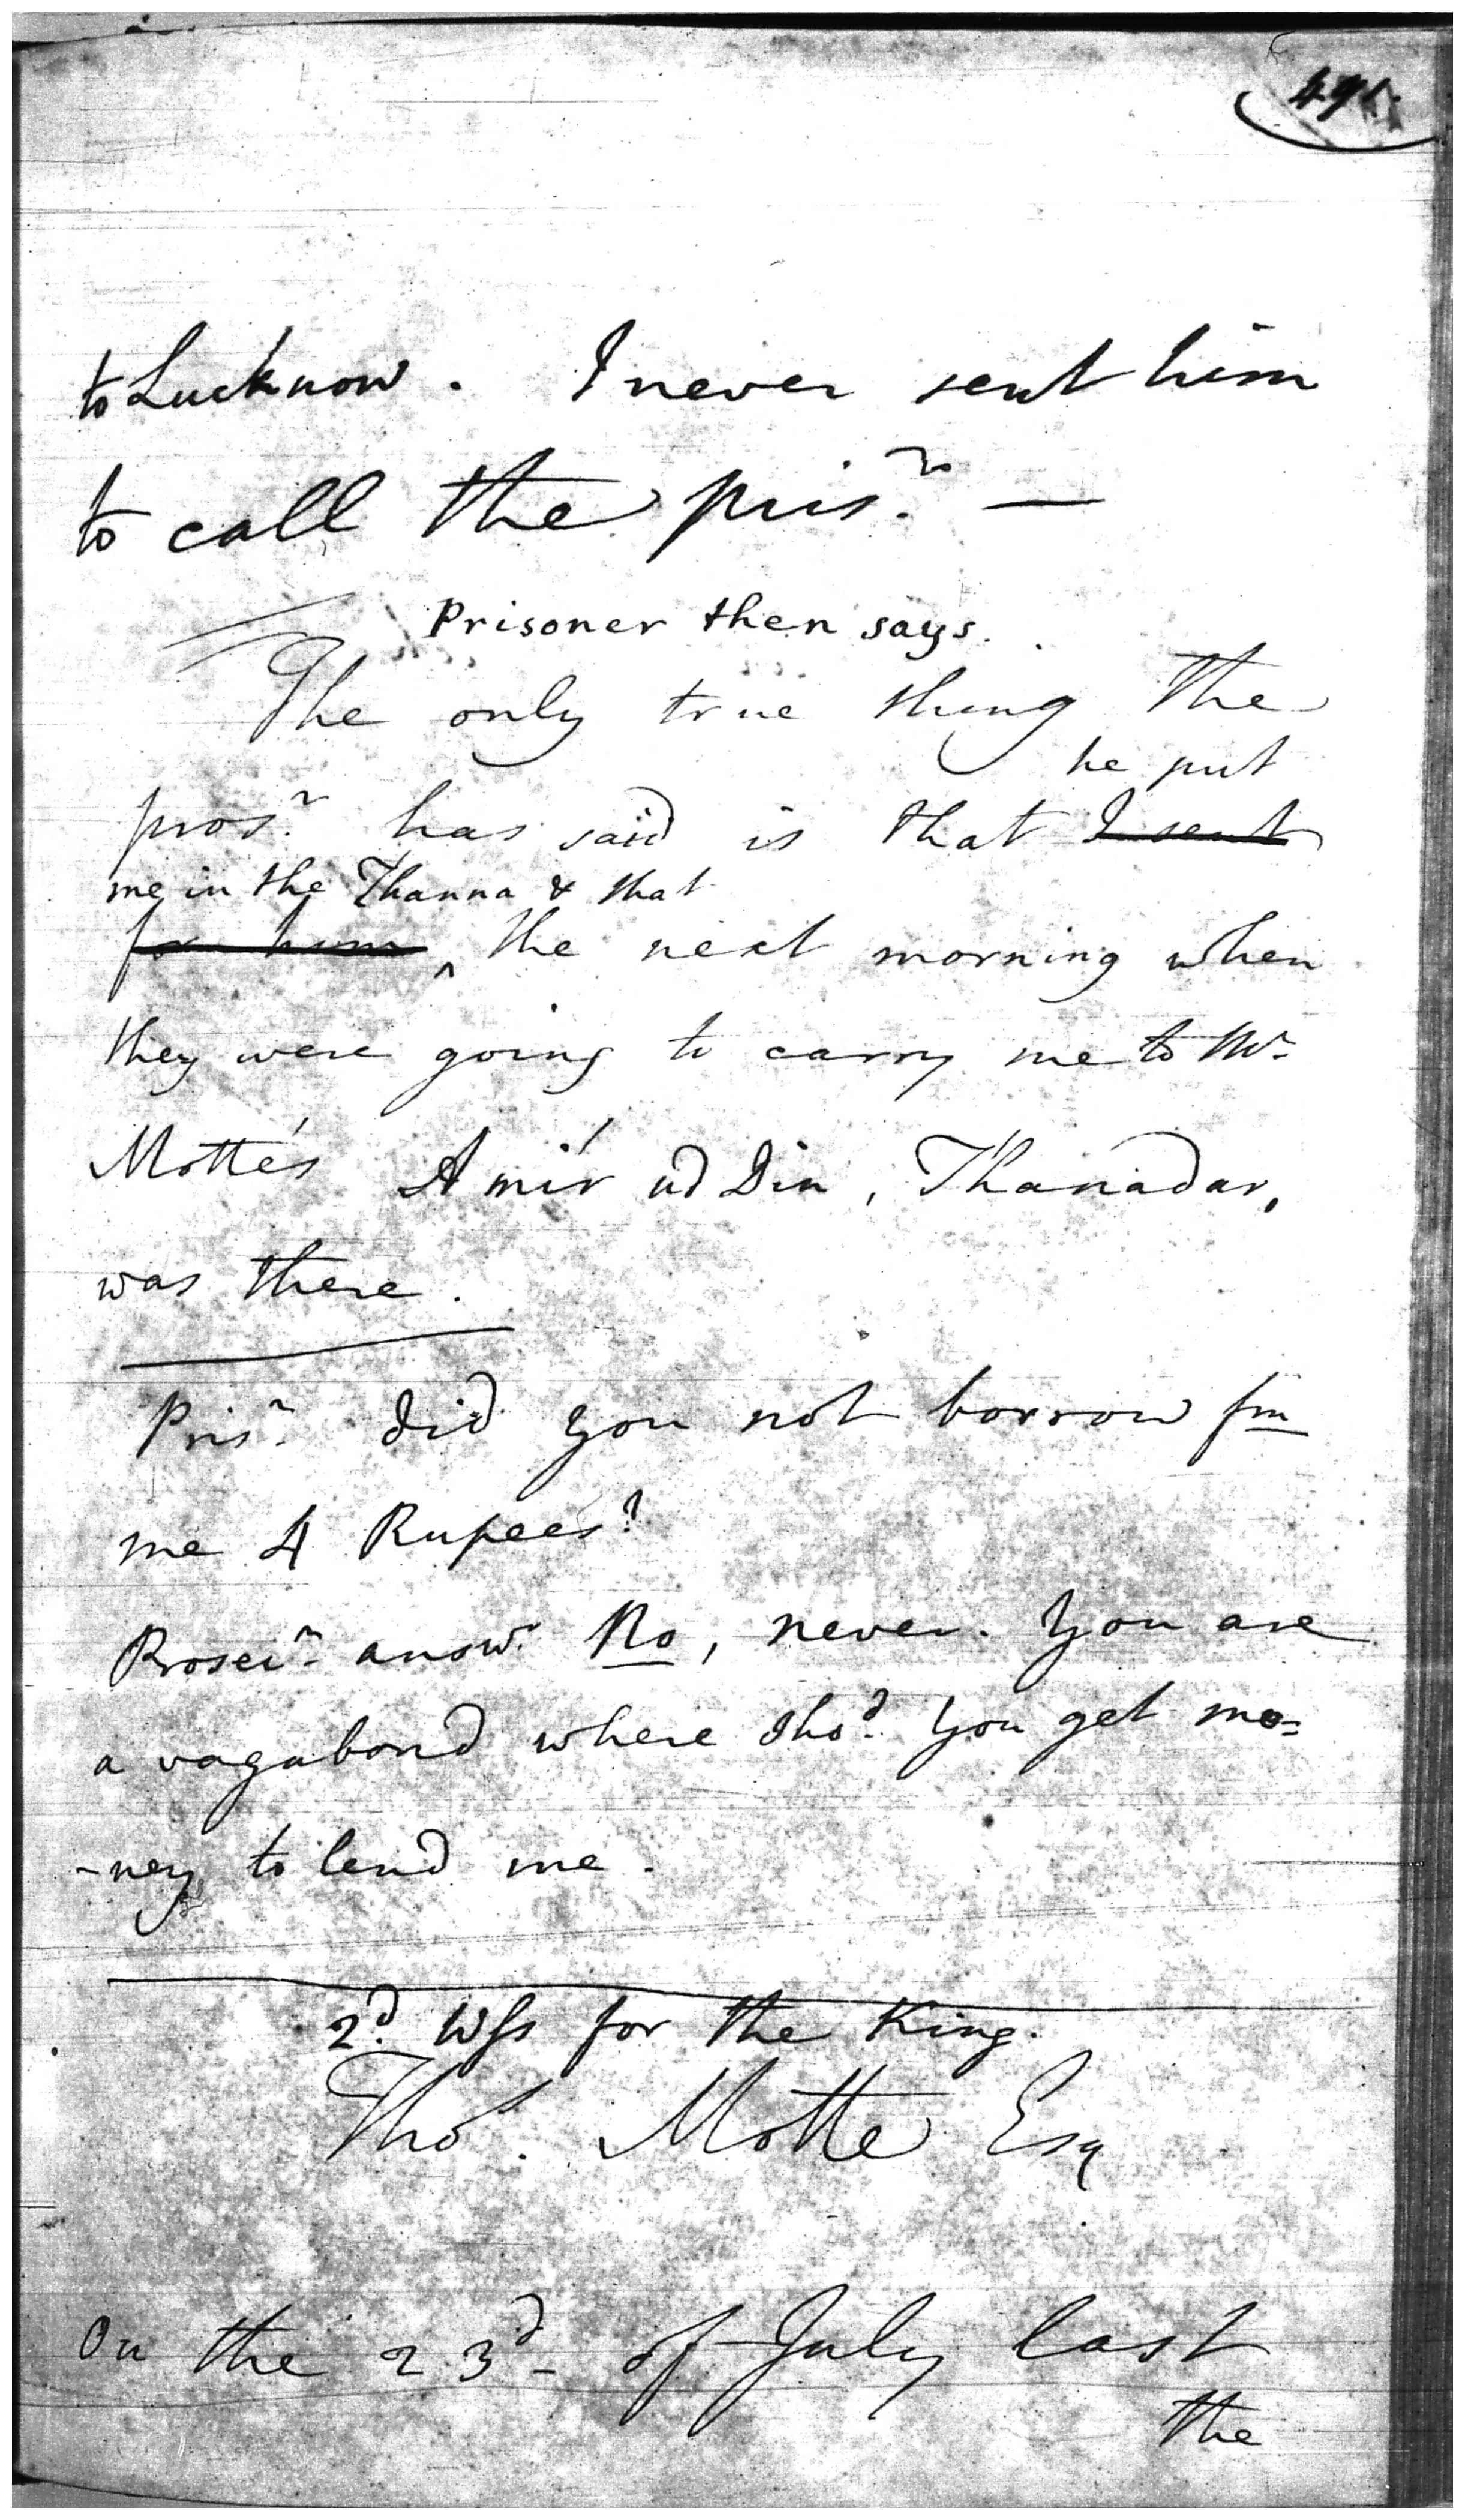 491.
to Lucknow. I never sent him
to call the pris.r —
Prisoner then says.
The only true thing the
he put
pros.r has said is that I sent
me in the Thanna & that
for him ^ the next morning when
they were going to carry me to Mr
Motte's Amír ud Din, Thanadar,
was there.
Pris.r did you not borrow fm
me 4 Rupees?
Prosec.r answ. No, never. You are
a vagabond where sho.d you get mo=
-ney to lend me.
2.d Wss for the King.
Tho.s Motte Esq
On the 23.d of July last
the